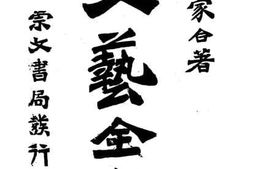 家合著
文藝全
崇文書局發行